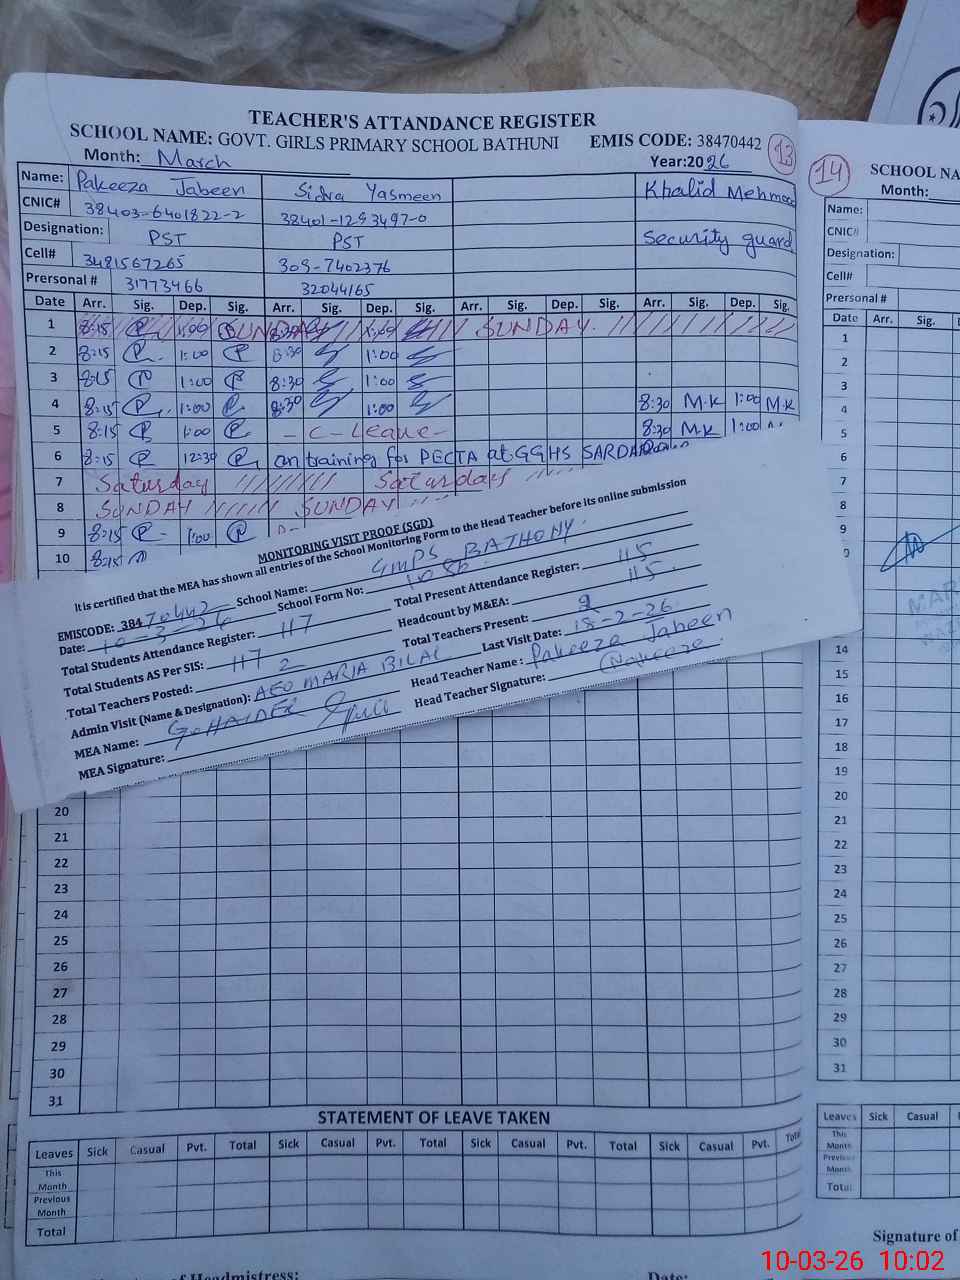 TEACHER'S ATTANDANCE REGISTER
SCHOOL NAME: GOVT. GIRLS PRIMARY SCHOOL BATHUNI EMIS CODE: 38470442 13
Month: March Year:2026
Name: Pakeeza Jabeen Sidra Yasmeen Khalid Mehmood
CNIC# 38403-6401822-2 38401-1293497-0
Designation: PST PST Security guard
Cell# 3481567265 309-7402376
Prersonal # 31773466 32044165
Date Arr. Sig. Dep. Sig. Arr. Sig. Dep. Sig. Arr. Sig. Dep. Sig. Arr. Sig. Dep. Sig.
1 8:15 P 1:00 SUNDAY 8:30 SUNDAY.
2 8:15 P 1:00 P 8:30 1:00
3 8:15 P 1:00 P 8:30 1:00
4 8:15 P 1:00 P 8:30 1:00 8:30 M.K 1:00 M.K
5 8:15 P 1:00 P - C - Leave - 8:30 M.K 1:00
6 8:15 P 12:30 P on training for PECTA at GGHS SARDAR
7 Saturday Saturday
8 SUNDAY SUNDAY
9 8:15 P 1:00 P
10 8:15
MONITORING VISIT PROOF (SGD)
It is certified that the MEA has shown all entries of the School Monitoring Form to the Head Teacher before its online submission
EMISCODE: 38470442 School Name: GMPS BATHONY
Date: 10-3-26 School Form No:
Total Students Attendance Register: 117 Total Present Attendance Register: 115
Total Students AS Per SIS: 117 Headcount by M&EA: 115
Total Teachers Posted: 2 Total Teachers Present: 2
Admin Visit (Name & Designation): AEO MARIA BILAL Last Visit Date: 18-2-26
MEA Name: G. HAIDER Head Teacher Name : Pakeeza Jabeen
MEA Signature: Head Teacher Signature:
20
21
22
23
24
25
26
27
28
29
30
31
STATEMENT OF LEAVE TAKEN
Leaves Sick Casual Pvt. Total Sick Casual Pvt. Total Sick Casual Pvt. Total Sick Casual Pvt. Total
This Month
Previous Month
Total
Headmistress: Date:
14 SCHOOL NA
Month:
Name:
CNIC#
Designation:
Cell#
Prersonal #
Date Arr. Sig.
1
2
3
4
5
6
7
8
9
14
15
16
17
18
19
20
21
22
23
24
25
26
27
28
29
30
31
Leaves Sick Casual
This Month
Previous Month
Total
Signature of
10-03-26 10:02